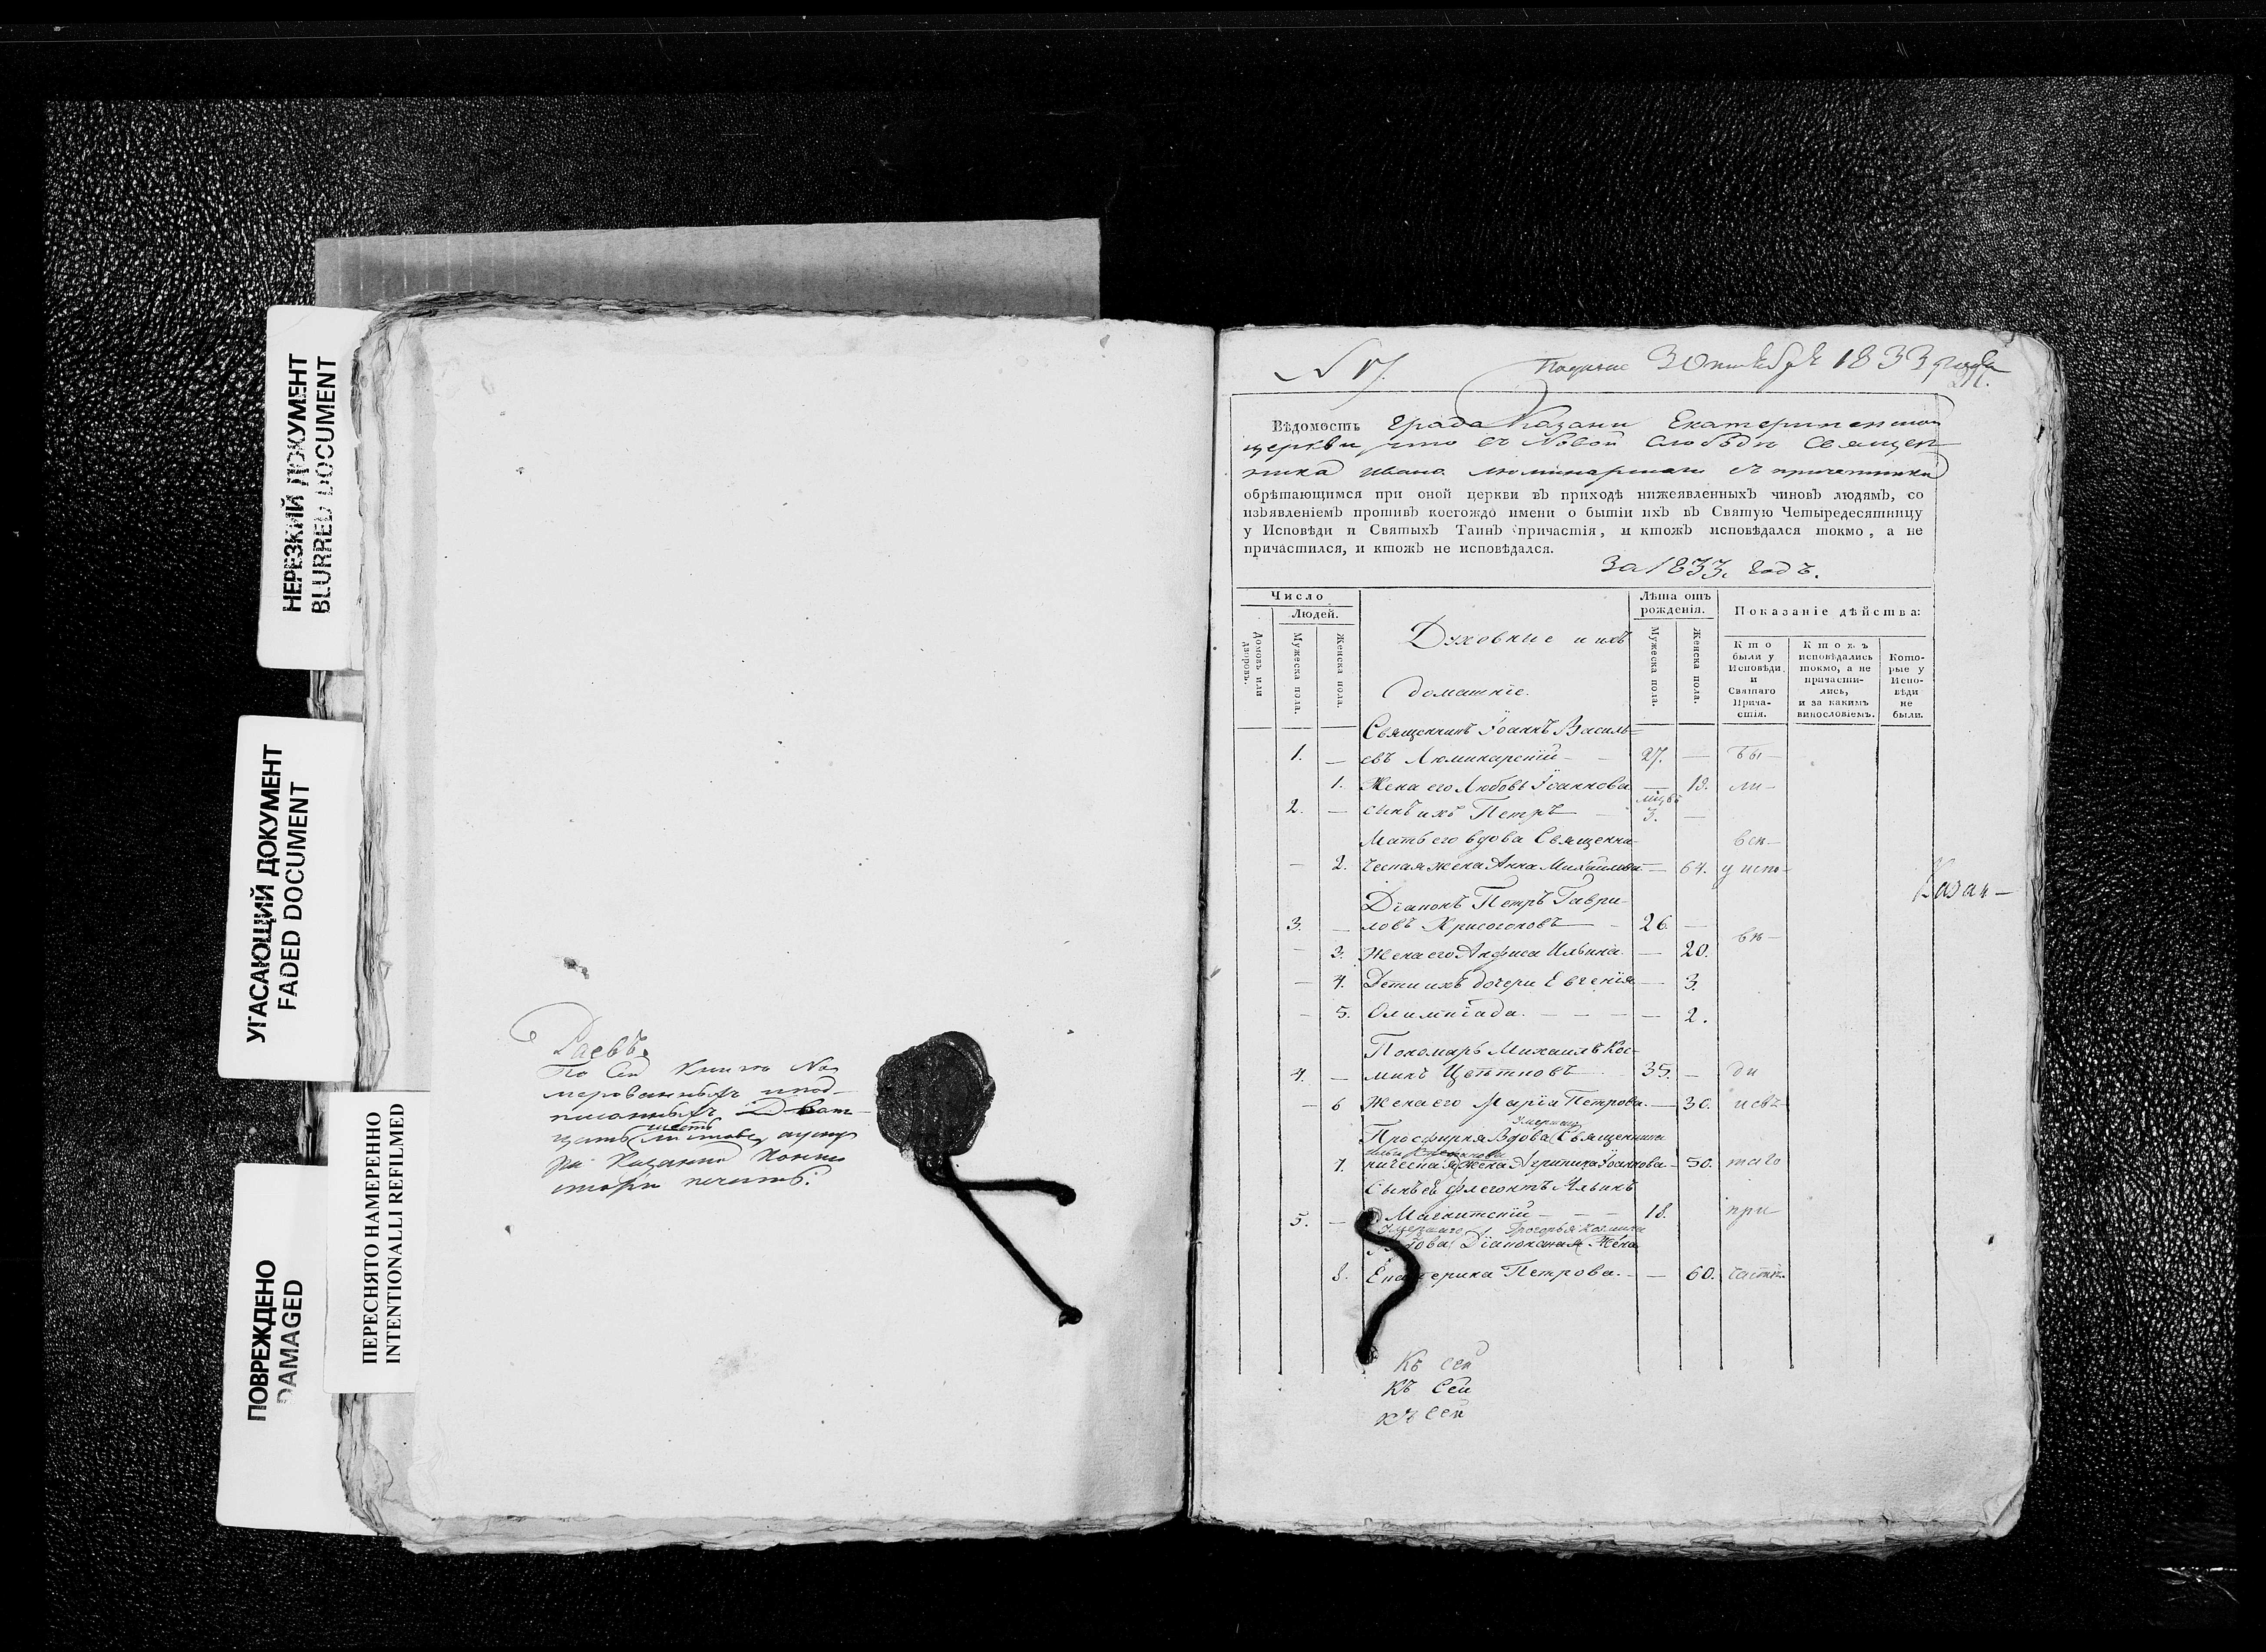 НЕРЕЗКИЙ ДОКУМЕНТ
BLURRED DOCUMENT
УГАСАЮЩИЙ ДОКУМЕНТ
FADED DOCUMENT
ПЕРЕСНЯТО НАМЕРЕННО
INTENTIONALLI REFILMED
ПОВРЕЖДЕНО
DAMAGED
Раевъ.
По Сей Книге
шесть
листовъ
печать.
№ 17.
1833 года
Вѣдомость града Казани Екатерининской
церкви что въ Новой слободѣ Священ
ника Ивана Люминарскаго съ причетники
обрѣтающимся при оной церкви въ приходѣ нижеявленныхъ чиновъ людямъ, со
изъявленіемъ противъ коегождо имени о бытіи ихъ въ Святую Четыредесятницу
у Исповѣди и Святыхъ Таинъ причастія, и ктожъ исповѣдался токмо, а не
причастился, и ктожъ не исповѣдался.
За 1833. Годъ.
Число
Людей.
Домовъ или дворовъ.
Мужеска пола.
Женска пола.
Духовные и ихъ
домашніе.
Лѣта отъ рожденія.
Мужеска пола.
Женска пола.
Показаніе дѣйства:
Кто были у Исповѣди и Святаго Прича-стія.
Ктожъ исповѣдались токмо, а не причасти-лись, и за какимъ винословіемъ.
Кото-рые у Испо-вѣди не были.
Священникъ Іоаннъ Василь-
1. — евъ Люминарскій — 27. — бы-
1. Жена его Любовь Іоаннова — 18. ли-
2. — сынъ ихъ Петръ — 3. —
Мать его вдова Священни- вси-
— 2. ческая жена Анна Михайлова — 64. у испо-
Казан-
Діаконъ Петръ Гаври-
3. — ловъ Хрисогоновъ — 26. —
вѣ-
— 3. Жена его Анфиса Ильина. — 20.
— 4. Дети ихъ дочери Евгенія — 3.
— 5. Олимпіада. — — — — 2.
Пономарь Михаилъ Кос-
4. — минъ Цвѣтковъ — 35. — ди
— 6 Жена его Марія Петрова. — 30. и свя-
Просфирня Вдова Священни
7. ническая жена Агрипина Іоаннова — 50. таго
Сынъ ея Флегонтъ Ильинъ
5. — Магнитскій — — — 18. при
умершаго Григорья Козмина
Вдова Діаконская Жена
8. Екатерина Петрова. — — 60. части.
Къ сей
Къ Сей
къ сей